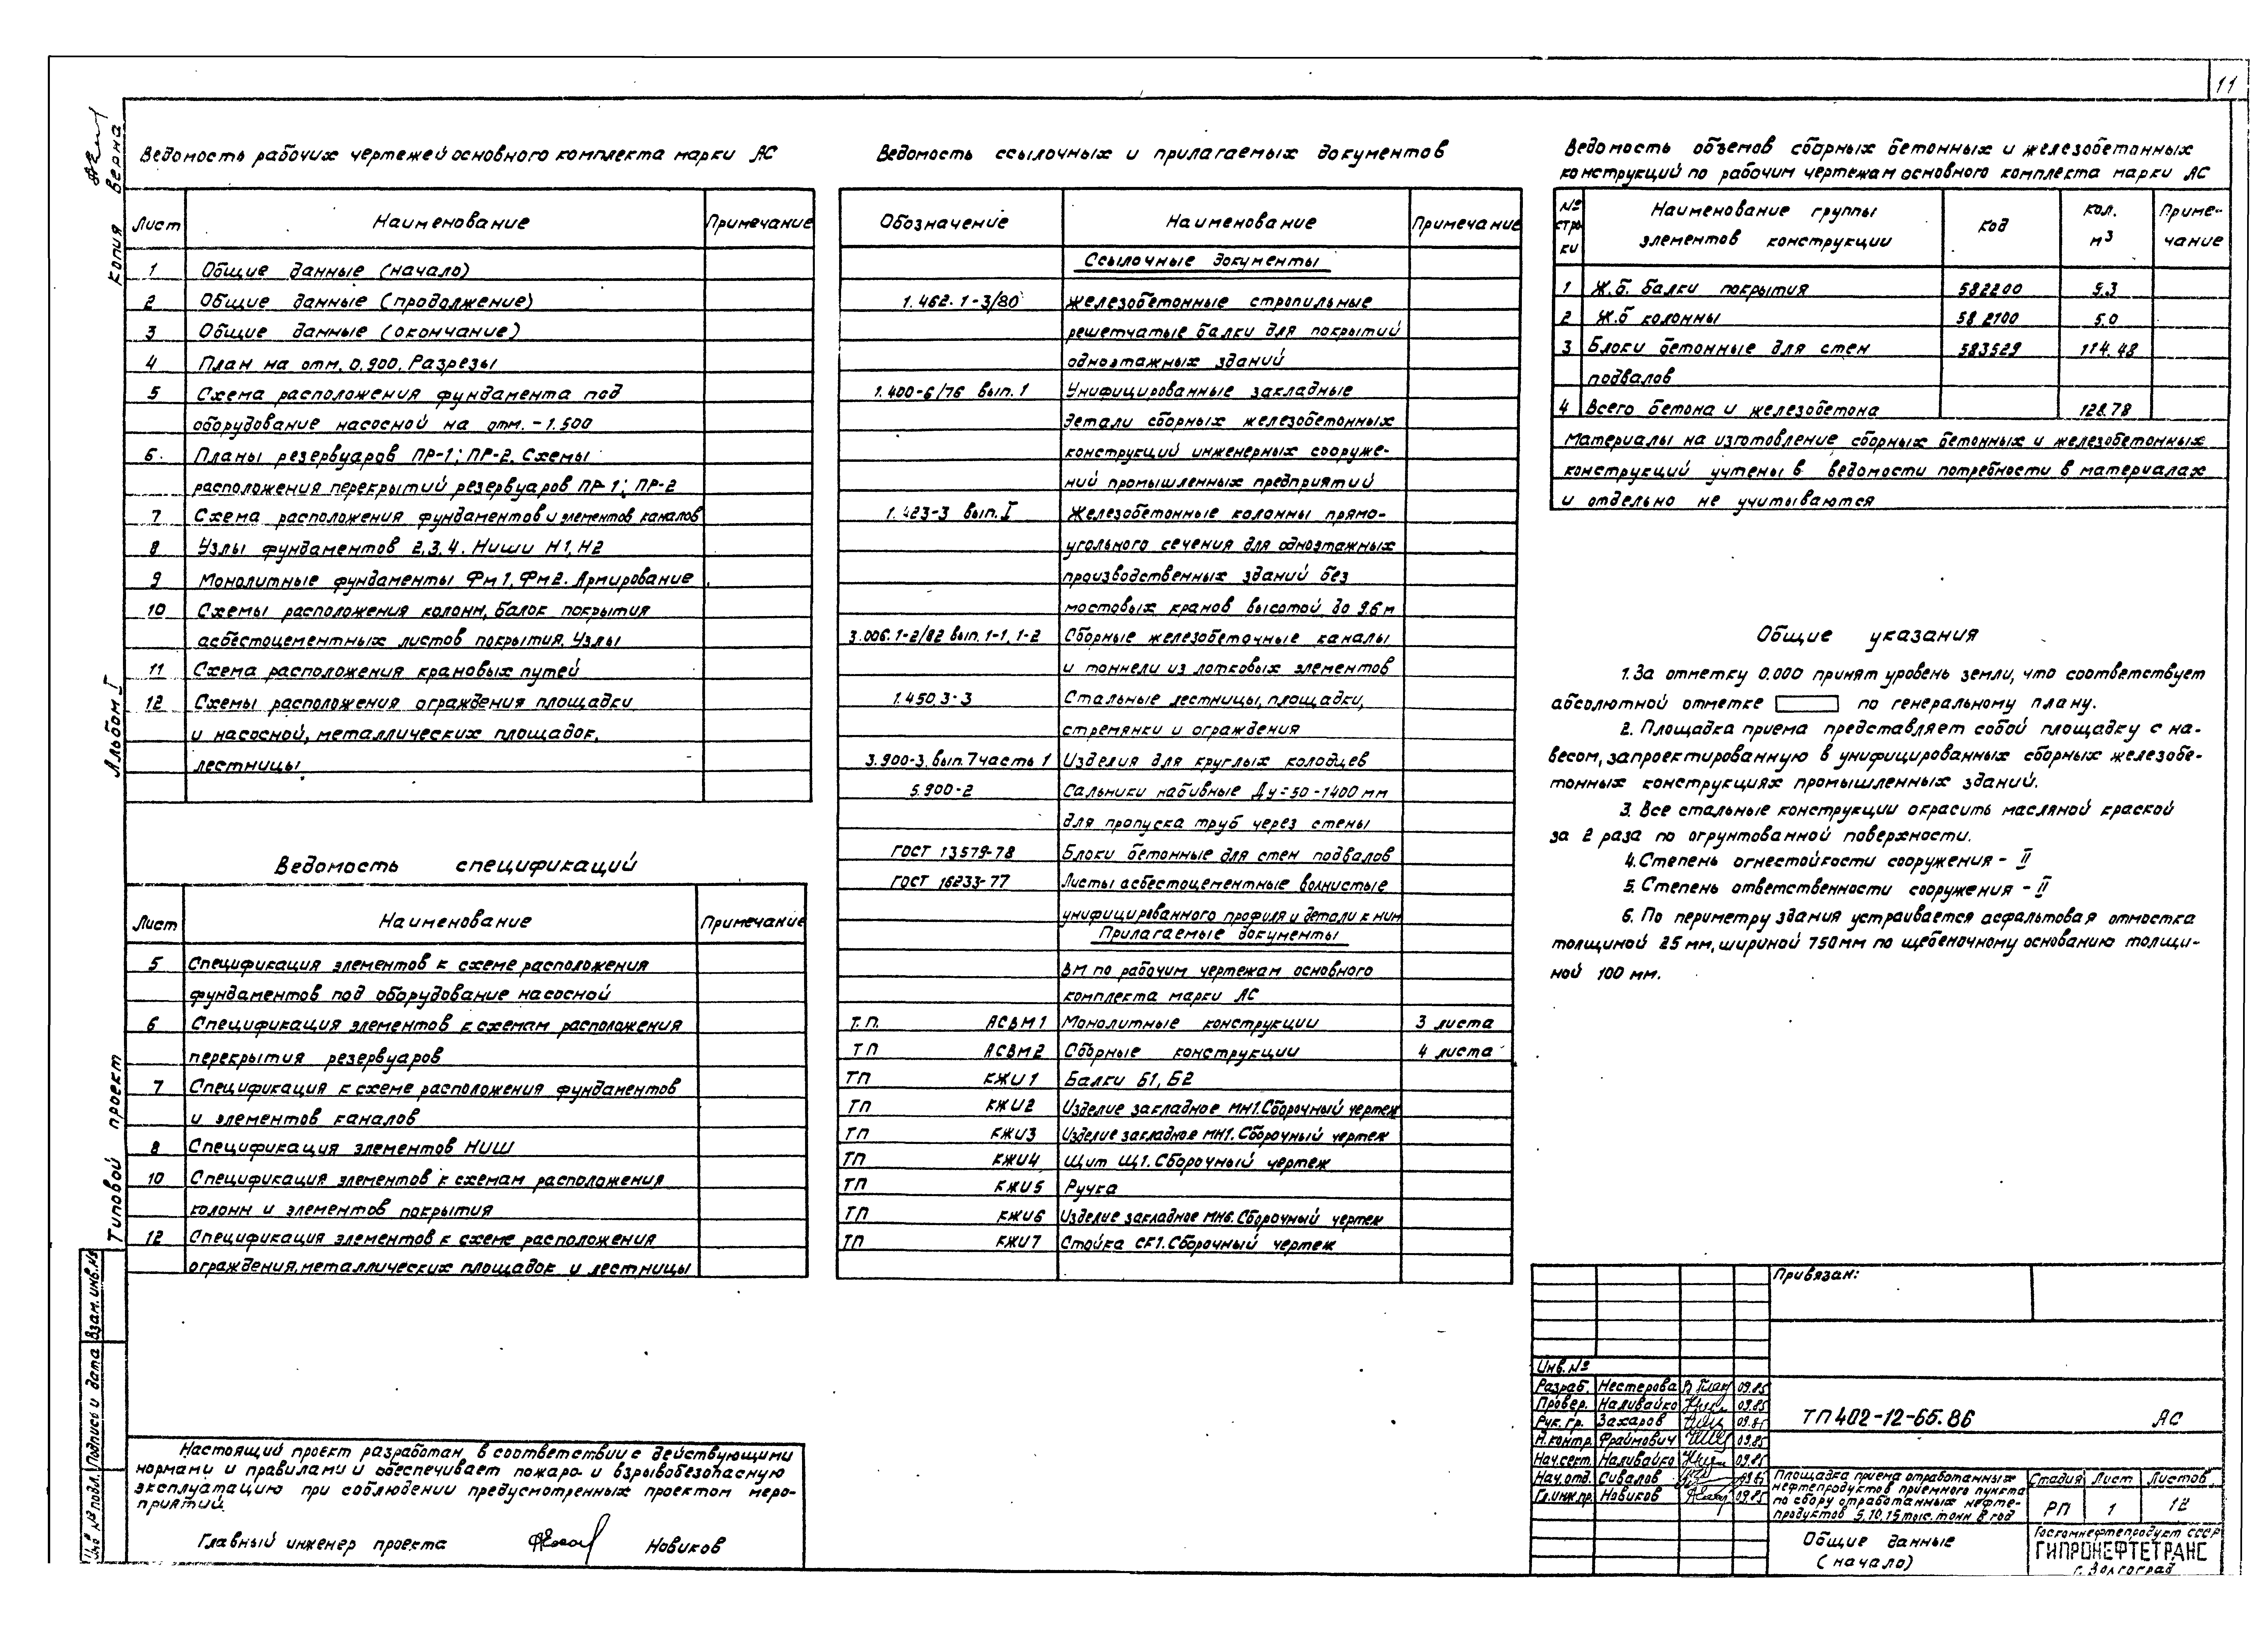 11
Копия верна
Альбом I
Типовой проект
Взам. инв. №
Подпись и дата
Инв № подл.
Ведомость рабочих чертежей основного комплекта марки АС
Лист Наименование Примечание
1 Общие данные (начало)
2 Общие данные (продолжение)
3 Общие данные (окончание)
4 План на отм. 0,900. Разрезы
5 Схема расположения фундамента под
оборудование насосной на отм. -1.500
6. Планы резервуаров ПР-1; ПР-2. Схемы
расположения перекрытий резервуаров ПР-1; ПР-2
7 Схема расположения фундаментов и элементов каналов
8 Узлы фундаментов 2,3,4. Ниши Н1, Н2
9 Монолитные фундаменты Фм1, Фм2. Армирование
10 Схемы расположения колонн, балок покрытия
асбестоцементных листов покрытия. Узлы
11 Схема расположения крановых путей
12 Схемы расположения ограждения площадки
и насосной, металлических площадок,
лестницы
Ведомость спецификаций
Лист Наименование Примечание
5 Спецификация элементов к схеме расположения
фундаментов под оборудование насосной
6 Спецификация элементов к схемам расположения
перекрытия резервуаров
7 Спецификация к схеме расположения фундаментов
и элементов каналов
8 Спецификация элементов НИШ
10 Спецификация элементов к схемам расположения
колонн и элементов покрытия
12 Спецификация элементов к схеме расположения
ограждения, металлических площадок и лестницы
Настоящий проект разработан в соответствии с действующими
нормами и правилами и обеспечивает пожаро- и взрывобезопасную
эксплуатацию при соблюдении предусмотренных проектом меро-
приятий.
Главный инженер проекта Новиков
Ведомость ссылочных и прилагаемых документов
Обозначение Наименование Примечание
Ссылочные документы
1.462.1-3/80 Железобетонные стропильные
решетчатые балки для покрытий
одноэтажных зданий
1.400-6/76 вып. 1 Унифицированные закладные
детали сборных железобетонных
конструкций инженерных сооруже-
ний промышленных предприятий
1.423-3 вып. I Железобетонные колонны прямо-
угольного сечения для одноэтажных
производственных зданий без
мостовых кранов высотой до 9.6 м
3.006.1-2/82 вып. 1-1, 1-2 Сборные железобетонные каналы
и тоннели из лотковых элементов
1.450.3-3 Стальные лестницы, площадки,
стремянки и ограждения
3.900-3. вып. 7 часть 1 Изделия для круглых колодцев
5.900-2 Сальники набивные Ду=50-1400 мм
для пропуска труб через стены
ГОСТ 13579-78 Блоки бетонные для стен подвалов
ГОСТ 16233-77 Листы асбестоцементные волнистые
унифицированного профиля и детали к ним
Прилагаемые документы
ВМ по рабочим чертежам основного
комплекта марки АС
Т.П. АСВМ1 Монолитные конструкции 3 листа
ТП АСВМ2 Сборные конструкции 4 листа
ТП КЖИ1 Балки Б1, Б2
ТП КЖИ2 Изделие закладное МН1. Сборочный чертеж
ТП КЖИ3 Изделие закладное МН1. Сборочный чертеж
ТП КЖИ4 Щит Щ1. Сборочный чертеж
ТП КЖИ5 Ручка
ТП КЖИ6 Изделие закладное МН6. Сборочный чертеж
ТП КЖИ7 Стойка СК1. Сборочный чертеж
Ведомость объемов сборных бетонных и железобетонных
конструкций по рабочим чертежам основного комплекта марки АС
№ стро ки Наименование группы элементов конструкции Код Кол. м³ Приме- чание
1 Ж.б. балки покрытия 582200 9.3
2 Ж.б колонны 582100 5.0
3 Блоки бетонные для стен 583529 114.48
подвалов
4 Всего бетона и железобетона 128.78
Материалы на изготовление сборных бетонных и железобетонных
конструкций учтены в ведомости потребности в материалах
и отдельно не учитываются
Общие указания
1. За отметку 0.000 принят уровень земли, что соответствует
абсолютной отметке по генеральному плану.
2. Площадка приема представляет собой площадку с на-
весом, запроектированную в унифицированных сборных железобе-
тонных конструкциях промышленных зданий.
3. Все стальные конструкции окрасить масляной краской
за 2 раза по огрунтованной поверхности.
4. Степень огнестойкости сооружения - II
5. Степень ответственности сооружения - II
6. По периметру здания устраивается асфальтовая отмостка
толщиной 25 мм, шириной 750 мм по щебеночному основанию толщи-
ной 100 мм.
Привязан:
Инв. №
Разраб. Нестерова 09.85
Провер. Наливайко 09.85
Рук. гр. Захаров 09.85
Н. контр. Фраймович 09.85
Нач. сект. Наливайко 09.85
Нач. отд. Сивалов 09.85
Гл. инж. пр. Новиков 09.85
ТП 402-12-65.86 АС
Площадка приема отработанных
нефтепродуктов приемного пункта
по сбору отработанных нефте-
продуктов 5, 10, 15 тыс. тонн в год
Стадия Лист Листов
РП 1 12
Общие данные
(начало)
Госкомнефтепродукт СССР
ГИПРОНЕФТЕТРАНС
г. Волгоград